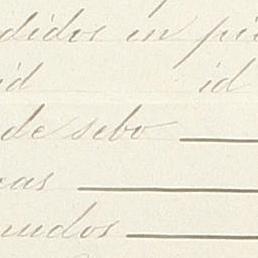 didos en pie
id id
de sebo
cas
nudos